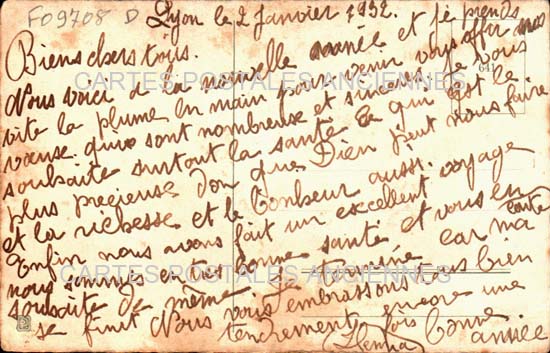 FO9708 D
Lyon le 2 Janvier 1932.
Biens chers tous.
Nous voici a la nouvelle année et je prends
vite la plume en main pour venir vous offrir nos
vœuse. qui sont nombreuse et sincères je vous
souhaite surtout la santé ce qui est le
plus precieuse don que Dieu peut nous faire
et la richesse et le bonheur aussi.
Enfin nous avons fait un excellent voyage
nous sommes en très bonne santé et vous en
souhaite de même. Je termine car ma carte
se finit Nous vous embrassons tous bien
tendrement encore une
fois bonne année
CARTES POSTALES ANCIENNES
CARTES POSTALES ANCIENNES